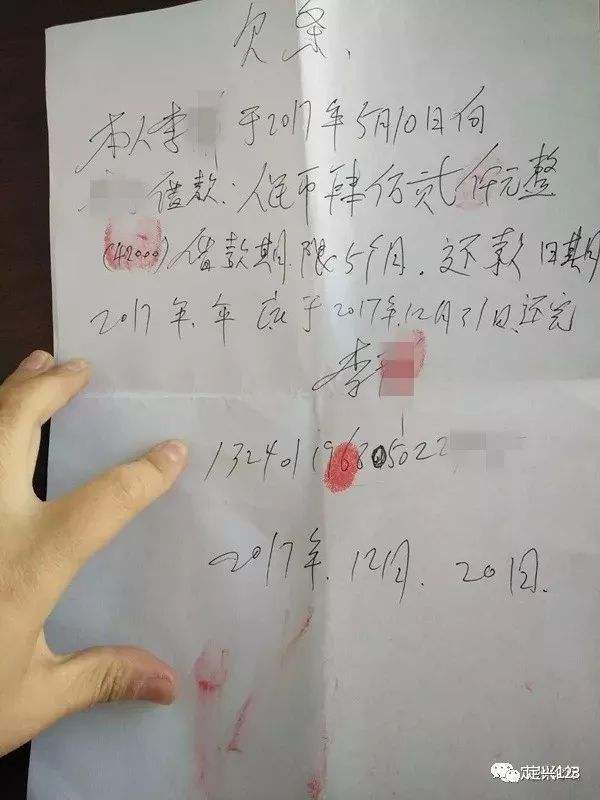 欠条、
本人李 于2017年5月10日向
借款:人民币肆仟贰仟元整
(42000)借款期限5个月.还款日期
2017年.年 应于2017年12月31日还完
李
132401196805022
2017年.12月.20日.
定兴123